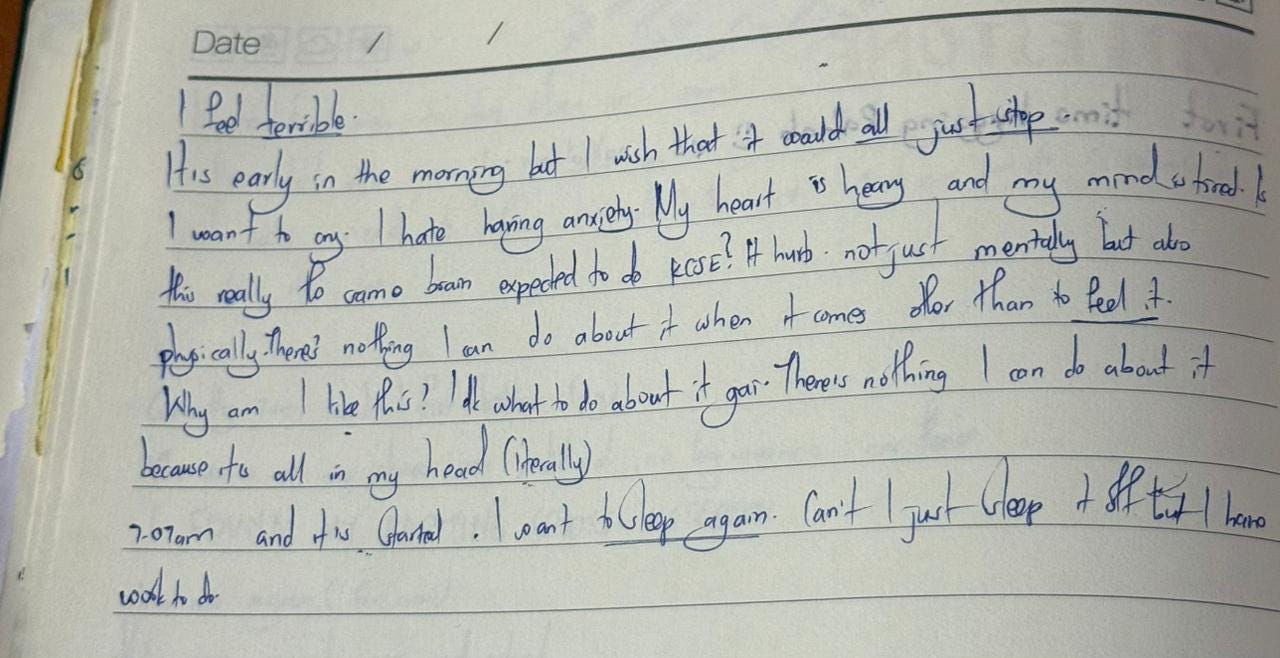 Date / /
I feel terrible.
It is early in the morning but I wish that it could all just stop.
I want to cry. I hate having anxiety. My heart is heavy and my mind is tired. Is
this really the same brain expected to do KCSE? It hurts. not just mentally but also
physically. There's nothing I can do about it when it comes other than to feel it.
Why am I like this? Idk what to do about it gai. There is nothing I can do about it
because its all in my head (literally)
7.07am and it is started. I want to sleep again. Can't I just sleep it off but I have
work to do.